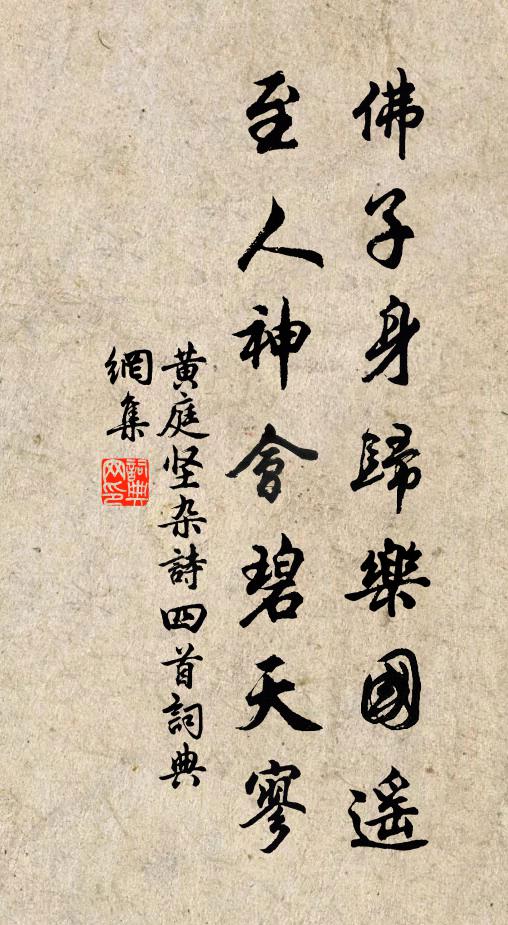 佛子身歸樂國遥
至人神會碧天寥
黄庭坚杂詩四首詞典
網集
詞典网印